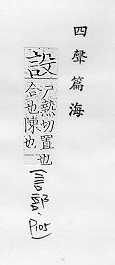 四聲篇海
設
尸熱切置也
合也陳也
(言部, P105)